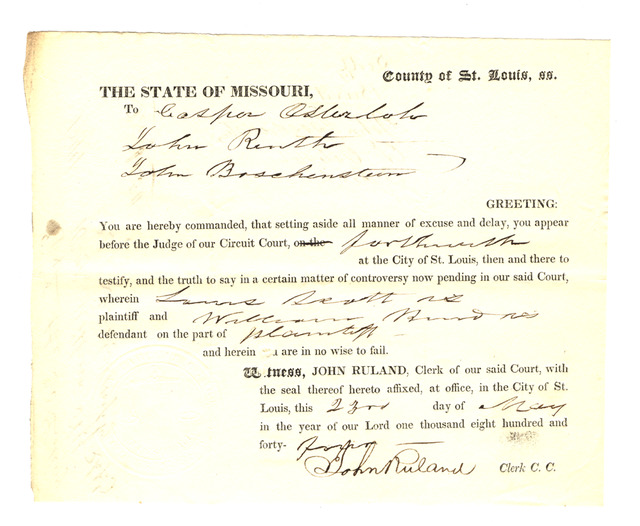 County of St. Louis, ss.
THE STATE OF MISSOURI,
To Casper Osterloh
John Renth
John Boschenstein
GREETING:
You are hereby commanded, that setting aside all manner of excuse and delay, you appear
before the Judge of our Circuit Court, on the forthwith
at the City of St. Louis, then and there to
testify, and the truth to say in a certain matter of controversy now pending in our said Court,
wherein Louis Scott is
plaintiff and William is
defendant on the part of plaintiff
and herein are in no wise to fail.
Witness, JOHN RULAND, Clerk of our said Court, with
the seal thereof hereto affixed, at office, in the City of St.
Louis, this 23rd day of May
in the year of our Lord one thousand eight hundred and
forty-
John Ruland Clerk C. C.